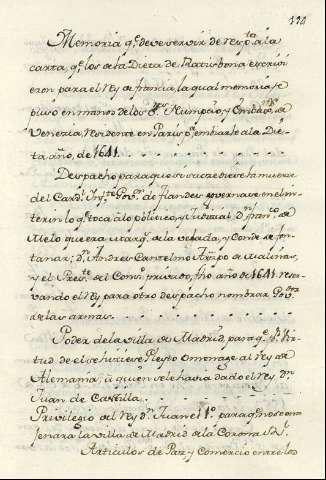 191
Memoria q.e deve servir de resp.ta à la
carta, q.e los de la Dieta de Ratisbona escrivi
eron para el Rey de francia, la qual memoria se
puso en manos de los S.res Numpcio, y Embax.or de
Venezia, residente en Paris p.a embiarle a la Die
ta año, de 1641.
Despacho para que si sucediese la muerte
del Card.l Inf.te Gov.or de flandes governase en el in
terin lo q.e toca à lo politico, y Judicial D.n fran.co de
Melo que era Marq.s de la velada, y Conde de fon
tanar; D.n Andres Cantelmo Arzpo de Malinas,
y el Pres.te del Cons.o privado, fho año de 1641 reser
vando el Rey para otro despacho nombrar Gov.or
de las armas.
Poder de la villa de Madrid, para q.e en vir
tud de el se hiciese Pleyto omenage al Rey de
Alemania, à quien se le havia dado el Rey D.n
Juan de Castilla.
Privilegio del Rey D.n Juan el 1.o para q.e no se ena
jenara la villa de Madrid de la Corona R.l
Articulos de Paz y Comercio entre los